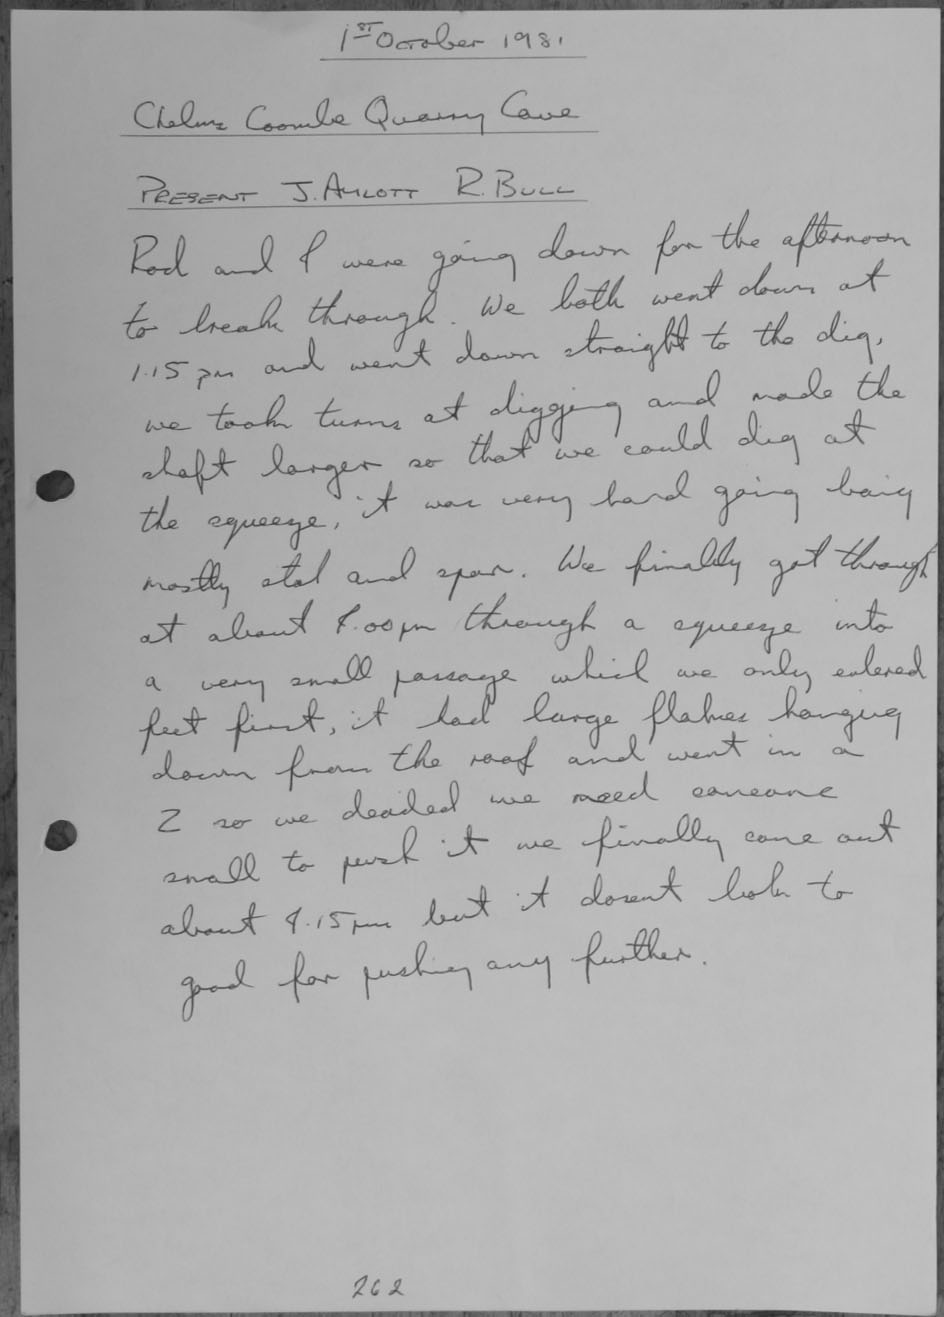 1ST October 1981
Chelms Coombe Quarry Cave
PRESENT J. AYLOTT R. BULL
Rod and I were going down for the afternoon
to break through. We both went down at
1.15 pm and went down straight to the dig,
we took turns at digging and made the
shaft larger so that we could dig at
the squeeze, it was very hard going being
mostly stal and spar. We finally got through
at about 8.00pm through a squeeze into
a very small passage which we only entered
feet first, it had large flakes hanging
down from the roof and went in a
Z so we decided we need someone
small to push it we finally come out
about 8.15pm but it dosent look to
good for pushing any further.
262